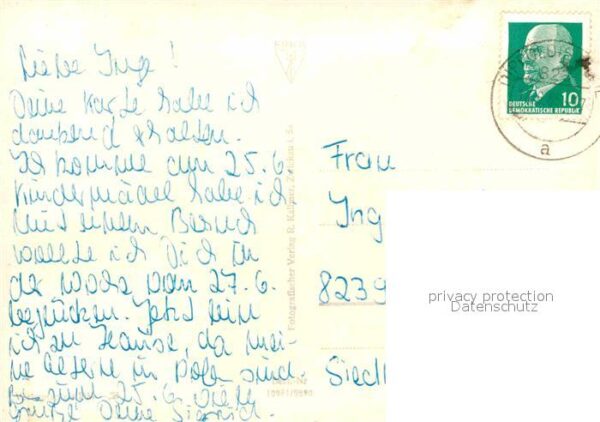 Liebe Inge!
Deine Karte habe ich
dankend erhalten.
Ich komme am 25.6.
Kindermädel habe ich
Mit einem Besuch
wollte ich Dich in
der Woche vom 27.6.
beglücken. Jetzt bin
ich zu Hause, da mei-
ne Eltern in Polen sind.
zum 25.6. viele
Grüße Deine
Frau
Ing
8239
Siedl
DEUTSCHE
DEMOKRATISCHE REPUBLIK
10
a
Fotografischer Verlag R. Kallmer, Zwickau i. Sa.
privacy protection
Datenschutz